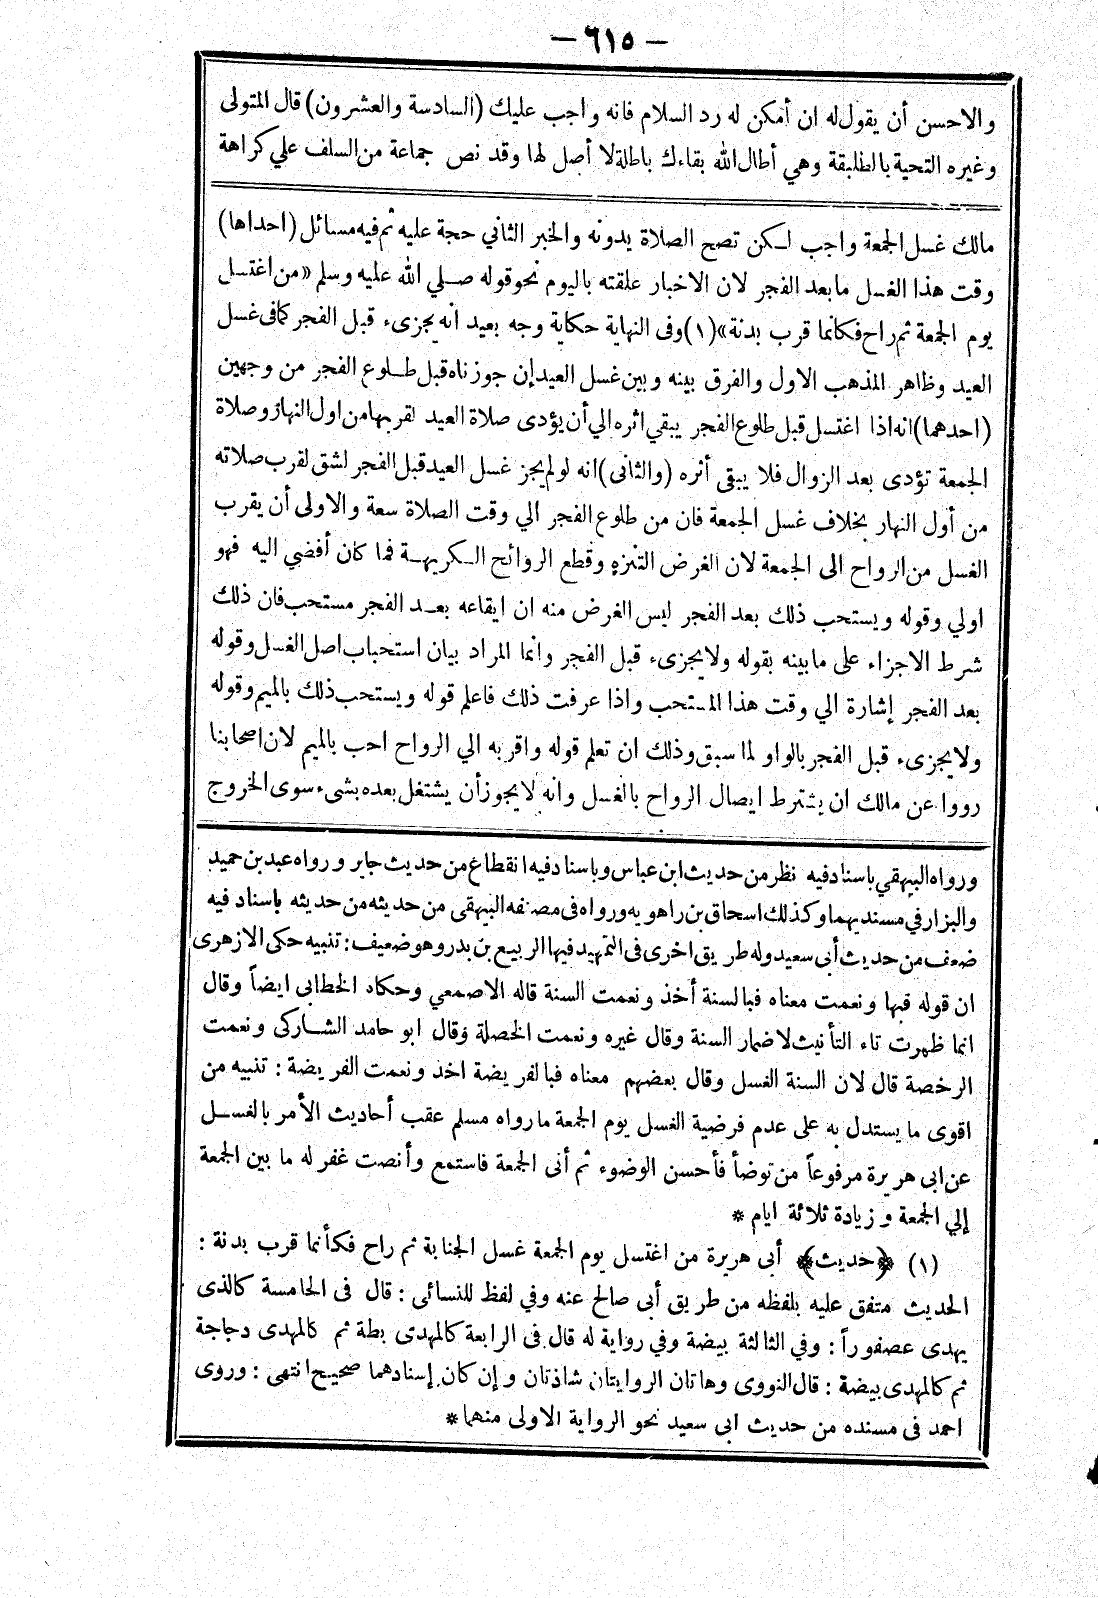 — ٦١٥ —
والاحسن أن يقول له ان أمكن له رد السلام فانه واجب عليك (السادسة والعشرون) قال المتولى
وغيره التحية بالطلبقة وهي أطال الله بقاءك باطلة لا أصل لها وقد نص جماعة من السلف علي كراهة
مالك غسل الجمعة واجب لكن تصح الصلاة بدونه والخبر الثاني حجة عليه ثم فيه مسائل (احداها)
وقت هذا الغسل ما بعد الفجر لان الاخبار علقته باليوم نحو قوله صلي الله عليه وسلم «من اغتسل
يوم الجمعة ثم راح فكانما قرب بدنة» (١) وفى النهاية حكاية وجه بعيد انه يجزىء قبل الفجر كما فى غسل
العيد وظاهر المذهب الاول والفرق بينه وبين غسل العيد إن جوزناه قبل طلوع الفجر من وجهين
(احدهما) انه اذا اغتسل قبل طلوع الفجر يبقي اثره الي أن يؤدى صلاة العيد لقربها من اول النهار وصلاة
الجمعة تؤدى بعد الزوال فلا يبقى أثره (والثانى) انه لو لم يجز غسل العيد قبل الفجر لشق لقرب صلاته
من أول النهار بخلاف غسل الجمعة فان من طلوع الفجر الي وقت الصلاة سعة والاولى أن يقرب
الغسل من الرواح الى الجمعة لان الغرض التنزه وقطع الروائح الكريهة فما كان أفضي اليه فهو
اولي وقوله ويستحب ذلك بعد الفجر ليس الغرض منه ان ايقاعه بعد الفجر مستحب فان ذلك
شرط الاجزاء على ما بينه بقوله ولا يجزىء قبل الفجر وانما المراد بيان استحباب اصل الغسل وقوله
بعد الفجر إشارة الي وقت هذا المستحب واذا عرفت ذلك فاعلم قوله ويستحب ذلك بالميم وقوله
ولا يجزىء قبل الفجر بالواو لما سبق وذلك ان تعلم قوله واقربه الي الرواح احب بالميم لان اصحابنا
رووا عن مالك ان يشترط ايصال الرواح بالغسل وانه لا يجوز أن يشتغل بعده بشىء سوى الخروج
ورواه البيهقي باسناد فيه نظر من حديث ابن عباس وباسناد فيه انقطاع من حديث جابر ورواه عبد بن حميد
والبزار في مسنديهما وكذلك اسحاق بن راهويه ورواه فى مصنفه البيهقى من حديثه من حديثه باسناد فيه
ضعف من حديث أبى سعيد وله طريق اخرى فى التمهيد فيها الربيع بن بدر وهو ضعيف : تنبيه حكى الازهرى
ان قوله فبها ونعمت معناه فبالسنة أخذ ونعمت السنة قاله الاصمعي وحكاه الخطابى ايضاً وقال
انما ظهرت تاء التأنيث لاضمار السنة وقال غيره ونعمت الخصلة وقال ابو حامد الشاركى ونعمت
الرخصة قال لان السنة الغسل وقال بعضهم معناه فبالفريضة اخذ ونعمت الفريضة : تنبيه من
اقوى ما يستدل به على عدم فرضية الغسل يوم الجمعة ما رواه مسلم عقب أحاديث الأمر بالغسل
عن ابى هريرة مرفوعاً من توضأ فأحسن الوضوء ثم أتى الجمعة فاستمع وأنصت غفر له ما بين الجمعة
إلي الجمعة وزيادة ثلاثة ايام *
(١) ﴿حديث﴾ أبى هريرة من اغتسل يوم الجمعة غسل الجنابة ثم راح فكأنما قرب بدنة :
الحديث متفق عليه بلفظه من طريق أبى صالح عنه وفي لفظ للنسائى : قال فى الخامسة كالذى
يهدى عصفوراً : وفي الثالثة بيضة وفي رواية له قال فى الرابعة كالمهدى بطة ثم كالمهدى دجاجة
ثم كالمهدى بيضة : قال النووى وهاتان الروايتان شاذتان وإن كان إسنادهما صحيح انتهى : وروى
احمد فى مسنده من حديث ابى سعيد نحو الرواية الاولى منهما *